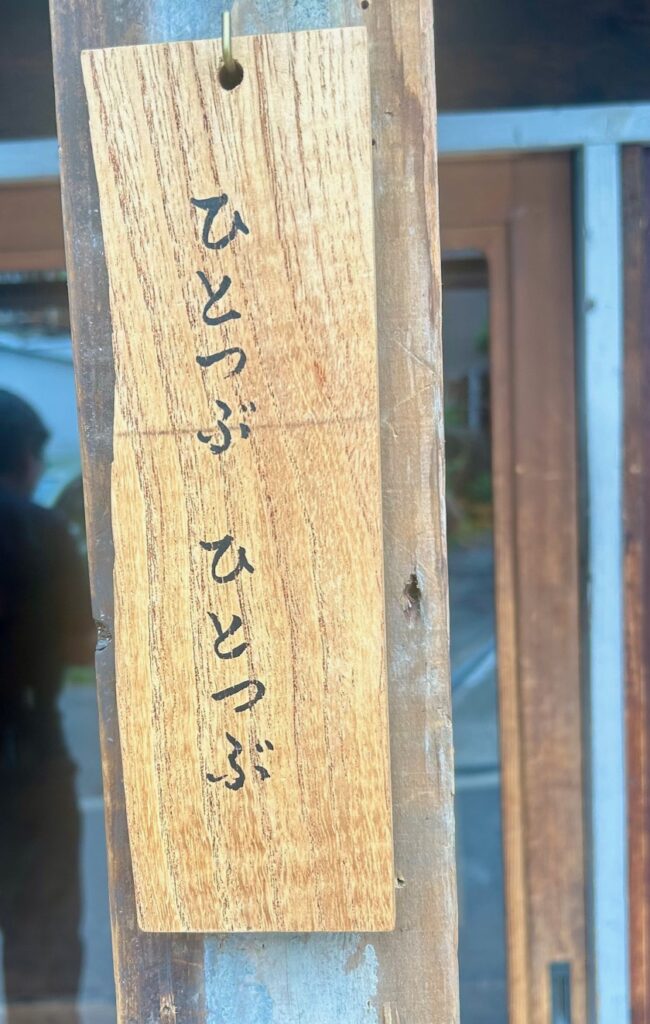 ひとつぶ ひとつぶ